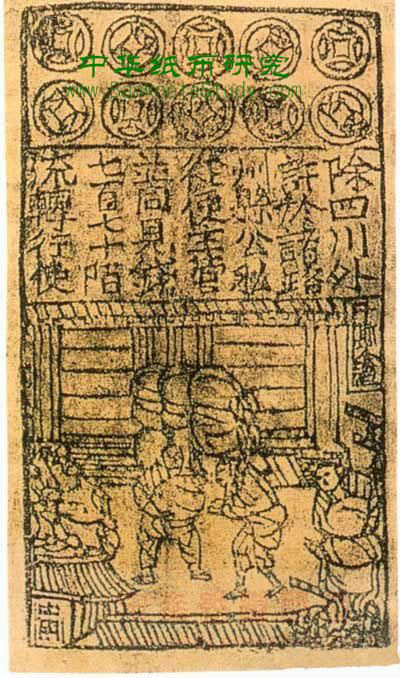 中华纸币研究
除四川外
許於諸路
州縣公私
從便主管
並同見錢
七百七十陌
流轉行使